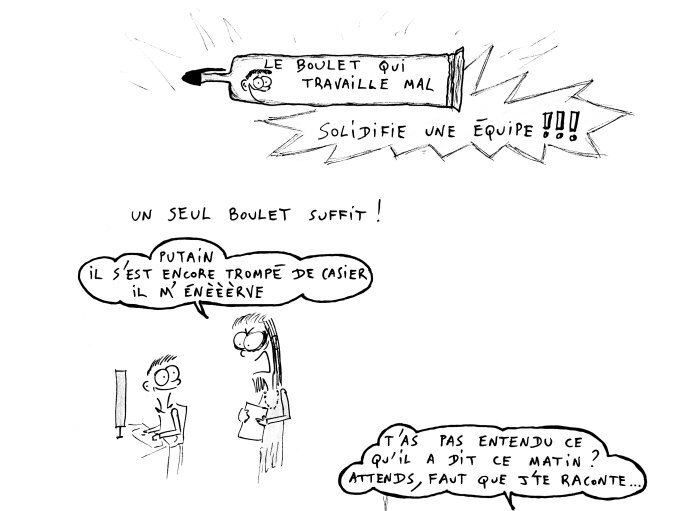 LE BOULET QUI
TRAVAILLE MAL
SOLIDIFIE UNE ÉQUIPE !!!
UN SEUL BOULET SUFFIT !
PUTAIN
iL S'EST ENCORE TROMPÉ DE CASIER
iL M'ÉNÈÈÈRVE
T'AS PAS ENTENDU CE
QU'IL A DIT CE MATIN ?
ATTENDS, FAUT QUE J'TE RACONTE...